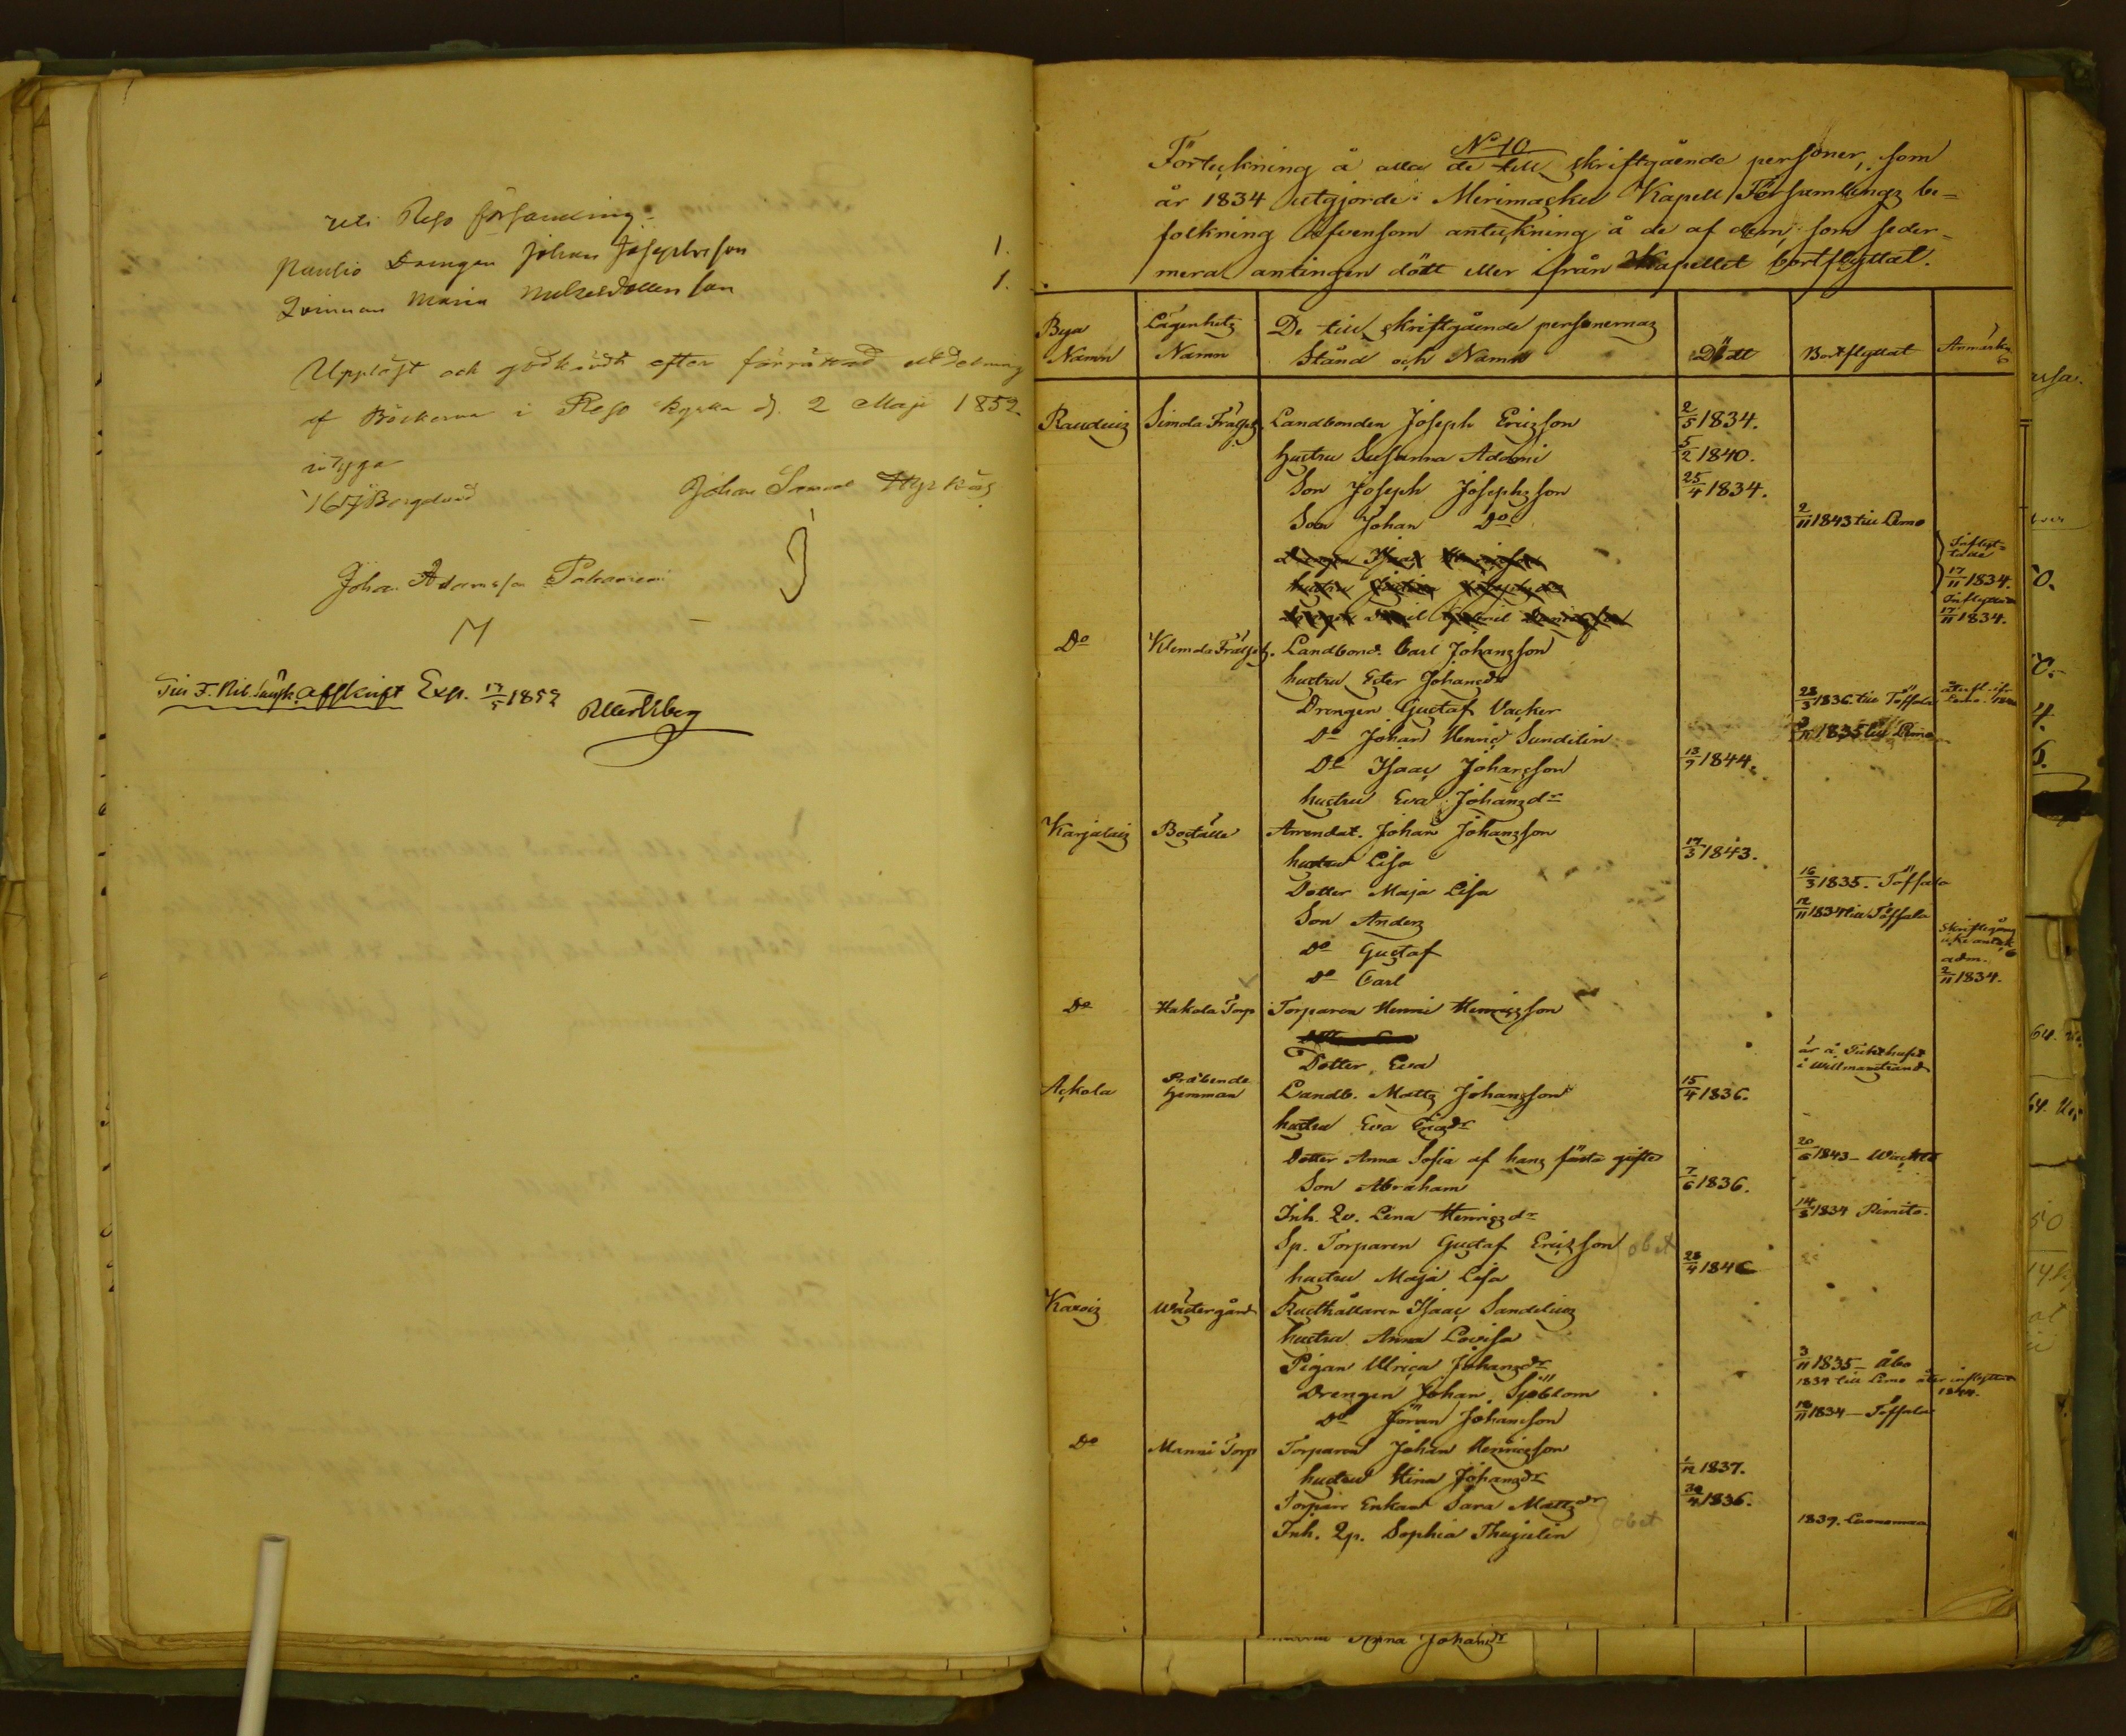 uti Reso församling
Pausio Drengen Johan Josephsson 1.
Qvinnan Maria 1.
Uppläst och godkändt efter förrättad utdelning
af Böckerna i Reso kyrka d. 2 Maji 1852.
intyga
Berglund Johan
Johan Adamsson
Till F. Rib. Länsk. afskrift Exp. 17/5 1852
No 10
Förteckning å alla de till skriftgående personer, som
år 1834 utgjorde Merimasku Kapell Församlings be=
folkning äfvensom anteckning å de af dem, som seder=
mera antingen dödt eller ifrån Kapellet bortflyttat.
Bya Namn Lägenhets Namn De till skriftgående personernas Stånd och Namn Dödt Bortflyttat Anmärkn.
Rauduis Simola Frälse Landbonden Joseph Ericsson 2/5 1834.
hustru Susanna Adami 5/2 1840.
Son Joseph Josephsson 25/4 1834.
Son Johan Do 2/11 1843 till Lemo
Inflyttade 17/11 1834.
Inflyttad 17/11 1834.
Do Klemola Frälseh. Landbond. Carl Johansson
hustru Ester Johansdr
Drengen Gustaf Vacker 28/3 1836 till Töffsala
Do Johan Henric Sundelin 3/11 1835 till Lemo
Do Isaac Johansson 13/7 1844.
hustru Eva Johansdr
Karjalais Boställe Arrendat. Johan Johansson
hustru Lisa 17/3 1843.
Dotter Maja Lisa 16/3 1835. Töfsala
Son Anders 12/11 1834 till Töffsala
Do Gustaf
Do Carl 2/11 1834.
Do Hakola Torp Torparen Henric Henricsson
Dotter Eva är å Tukthuset i Willmanstrand
Askola Præbende Hemman Landb. Matts Johansson 15/4 1836.
hustru Eva Ericsdr
Dotter Anna Sofia af hans första gifte 20/6 1843
Son Abraham 7/6 1836.
Inh. Qv. Lena Henricsdr 14/3 1834 Rimito.
Sp. Torparen Gustaf Ericsson obet
hustru Maja Lisa 28/4 1846
Karvis Westergård Rusthållaren Isaac Sandelius
hustru Anna Lovisa
Pigan Ulrica Johansdr 3/11 1835 – Åbo
Drengen Johan Sjöblom 1834 till Lemo åter inflyttad 1844.
Do Jöran Johansson 18/11 1834 – Töffsala
Do Manni Torp Torparen Johan Henricsson
hustru Stina Johansdr 1/12 1837.
Torpare Enkan Sara Mattsdr 30/4 1836.
Inh. Qp. Sophia Thuselin obet 1839. Luonnomaa
Anna Johansdr